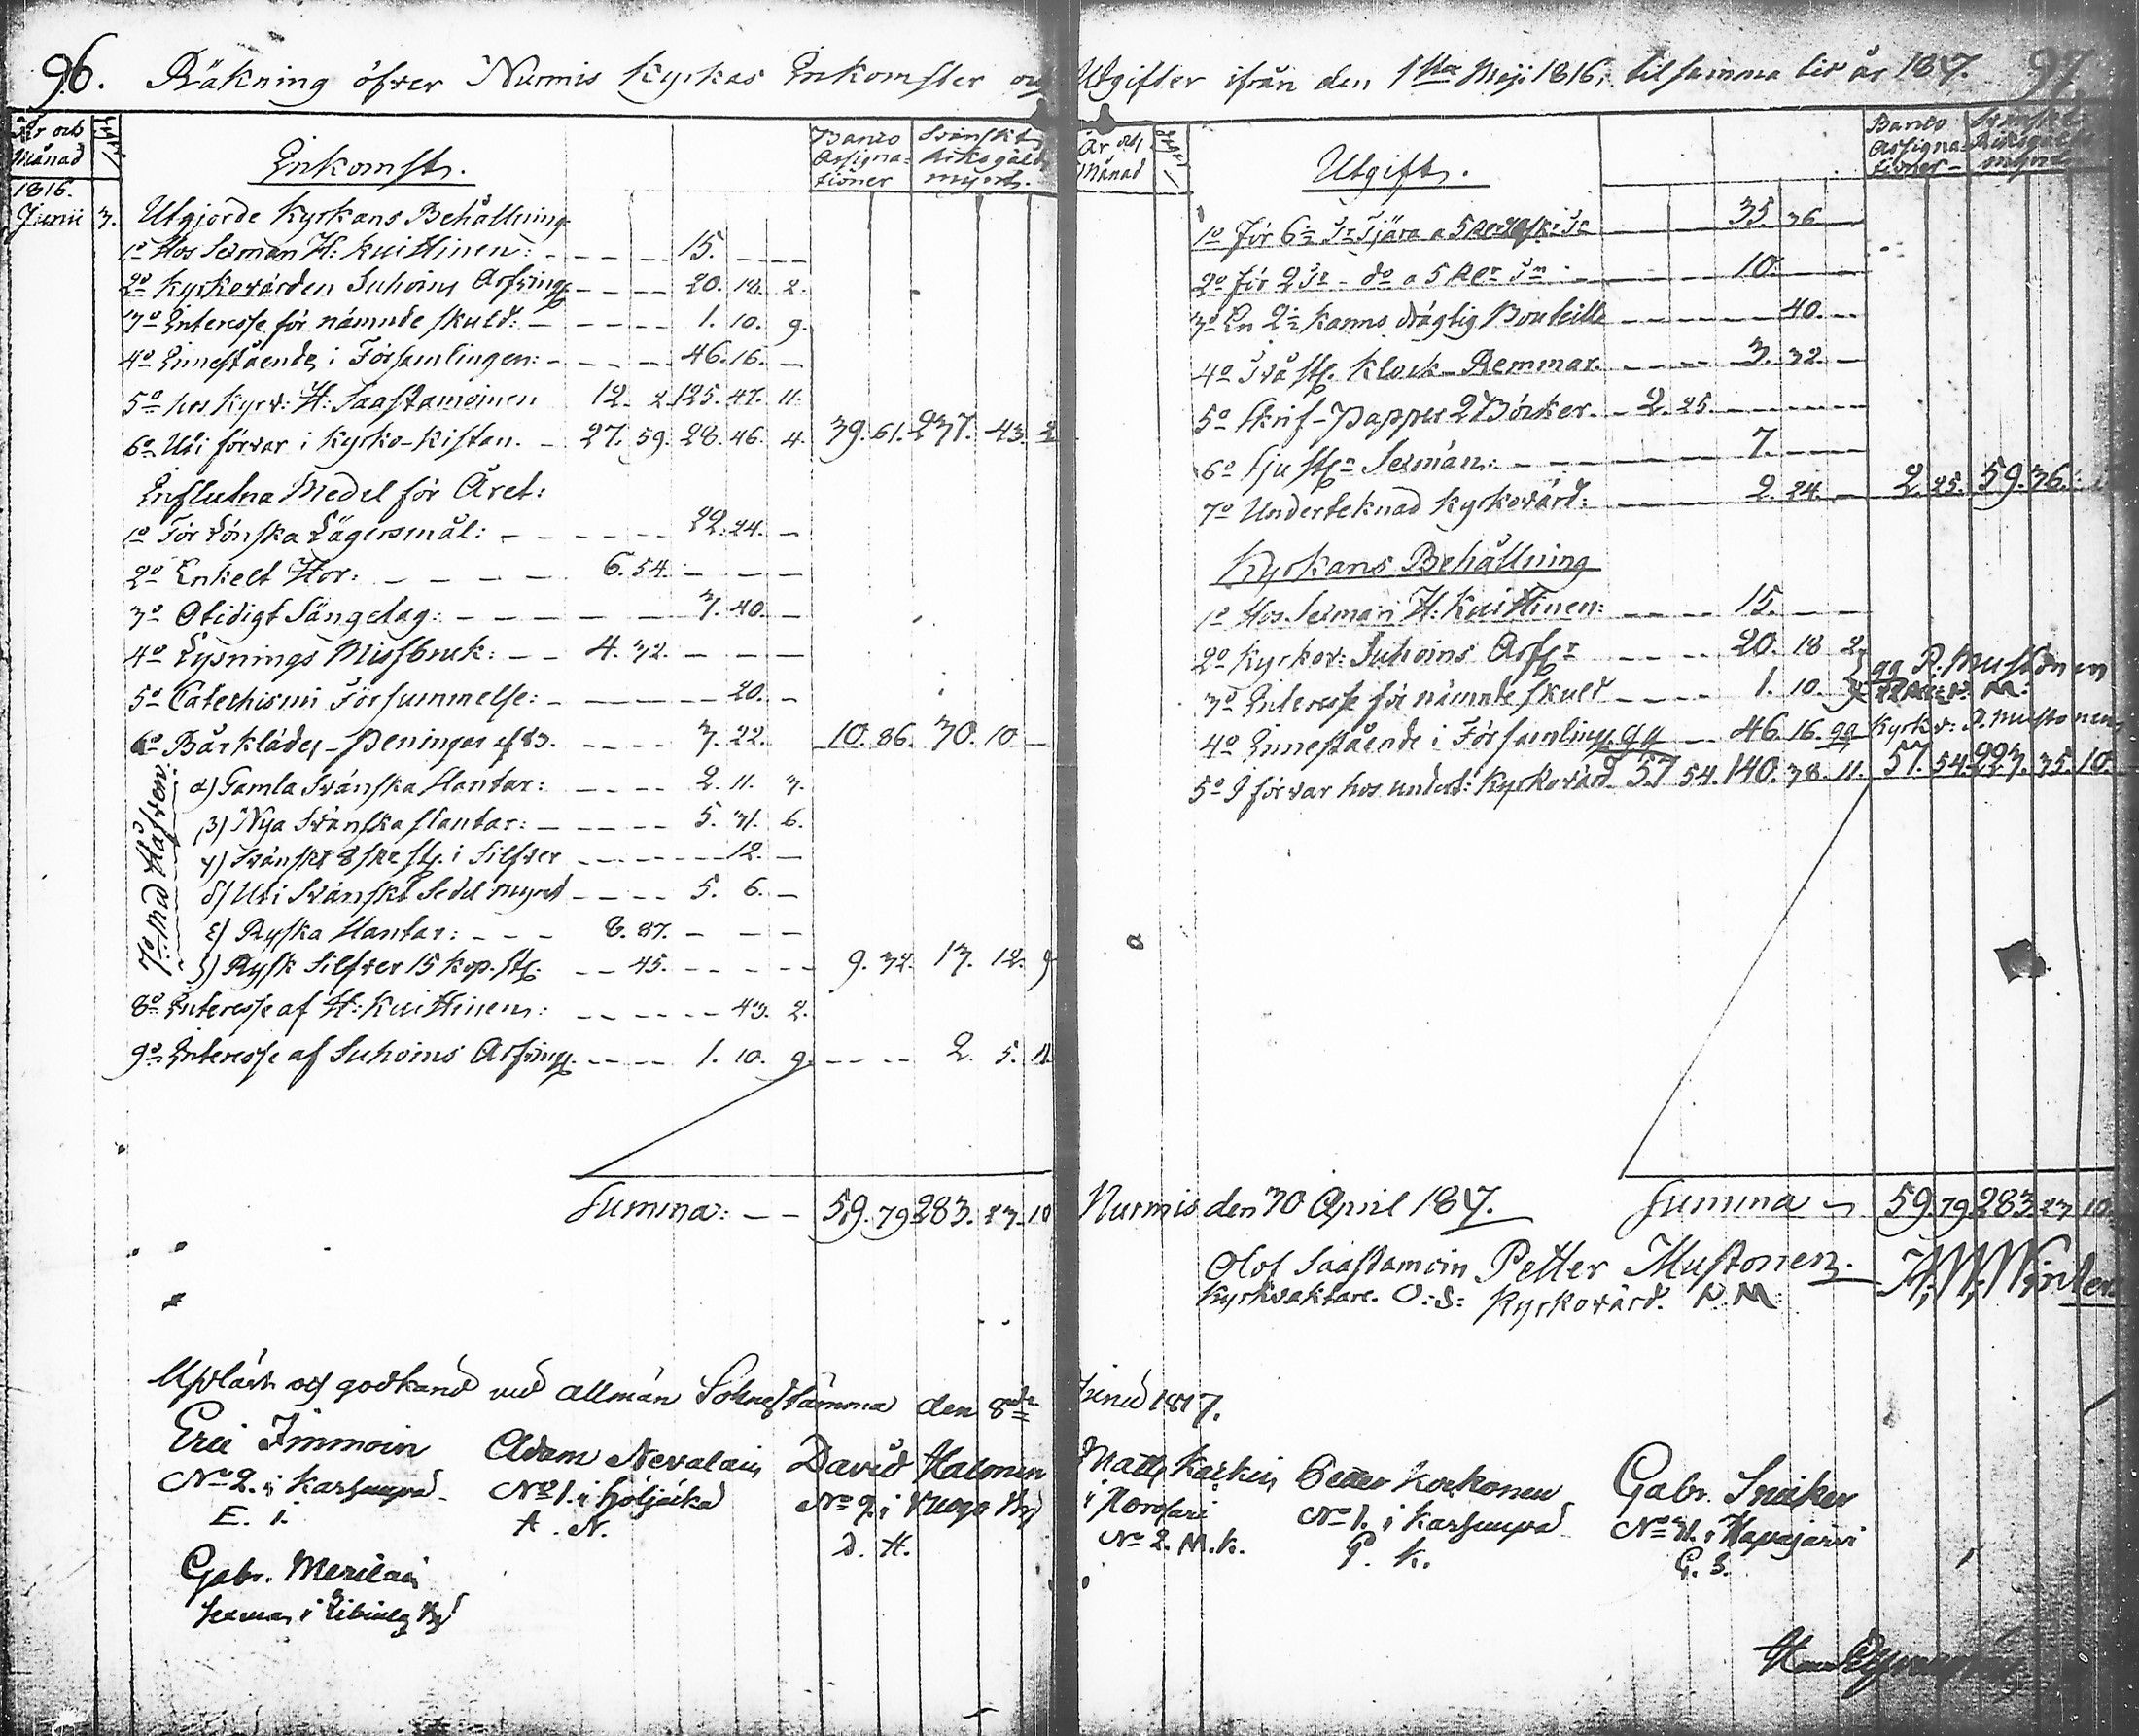 96. Räkning öfver Nurmis Kyrkas Inkomster och Utgifter ifrån den 1sta Maji 1816, til samma tid år 1817. 97
År och Månad
Inkomst.
Banco Assignationer
Svenskt Riksgälds mynt.
1816.
Junii 3. Utgjorde Kyrkans Behållning
1o Hos Sexman H: Kuittinen: 15.
2o Kyrkovärden Suhoins Arfving: 20. 18. 2.
3o Interesse för nämnde skuld: 1. 10. 9.
4o Innestående i Församlingen: 46. 16.
5o hos Kyrv: H: Saastamoinen 12. 2. 125. 47. 11.
6o Uti förvar i Kyrko-Kistan. 27. 59. 28. 46. 4. 39. 61. 237. 43. 2
Influtna Medel för Året:
1o För Lönska Lägersmål: 22. 24.
2o Enkelt Hor: 6. 54.
3o Otidigt Sängelag: 3. 40.
4o Lysnings Missbruk: 4. 32.
5o Catechismi Försummelse: 20.
6o Bårkläde-Peningar 3. 22. 10. 86. 30. 10
7o Med Håfven:
α) Gamla Svänska Slantar: 2. 11. 3.
β) Nya Svänska slantar: 5. 31. 6.
γ) Svänskt 8 sk st. i Silfver 12.
δ) Uti Svänskt Sedel mynt 5. 6.
ε) Ryska Slantar: 8. 87.
ζ) Rysk Silfver 15 kop. st. 45. 9. 32. 13. 12. 9
8o Interesse af H: Kuittinen: 43. 2.
9o Interesse af Suhoins Arfving. 1. 10. 9. 2. 5. 11
Summa: 59. 79 283. 23. 10
År och Månad
Utgift.
Banco Assignationer
Svenskt Riksgälds mynt
1o För 6 1/2 Tr Tjära a 5 35. 36
2o För 2 Tr do a 5 10.
3o En 2 1/2 Kanns drägtig Bouteille 40.
4o Två st. Klock-Remmar. 3. 32.
5o Skrif-Papper 2 Böcker. 2. 25.
6o Sju st. Sexmän: 7.
7o Underteknad Kyrkovärd: 2. 24. 2. 25. 59. 36.
Kyrkans Behållning
1o Hos Sexman H: Kuittinen: 15.
2o Kyrkov: Suhoins Arf 20. 18 2
3o Interesse för nämnde skuld 1. 10. 9 qq P. Mustonen
4o Innestående i Församling. qq 46. 16. qq Kyrkv: P. Mustonen
5o I förvar hos undert: Kyrkovärd 57 54. 140. 38. 11. 57. 54. 223. 35. 10.
Nurmis den 30 April 1817. Summa 59. 79. 283. 23. 10.
Olof Saastamoin Petter Mustonen. H. W. Winter
Kyrkvaktare. O: S: Kyrkovärd. P. M:
Upläst och godkänd vid allmän Sokne stämma den 8de Junii 1817.
Eric Immoin Adam Nevalain David Halonen Matts Karkin Petter Korhonen Gabr. Snicker
No 2. i Karhunpää No 1. i Höljäkä No 2. i Kuogo By i Porosari No 1. i Karhunpää No 31. i Hapajärvi
E. I. A. N. D. H. No 2. M. K. P. K. G. S.
Gabr. Meriläin
Sexman i By